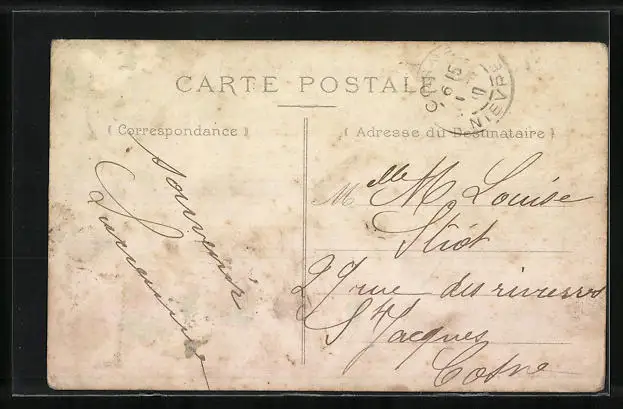 CARTE POSTALE
( Correspondance )
( Adresse du Destinataire )
souvenir
Mlle M Louise
27 rue des rivieres
St Jacques
Cosne
NIEVRE